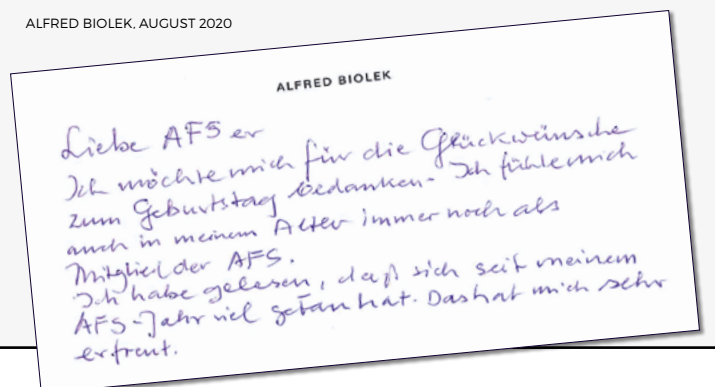 ALFRED BIOLEK, AUGUST 2020
ALFRED BIOLEK
Liebe AFSer
Ich möchte mich für die Glückwünsche
zum Geburtstag bedanken. Ich fühle mich
auch in meinem Alter immer noch als
Mitglied der AFS.
Ich habe gelesen, daß sich seit meinem
AFS-Jahr viel getan hat. Das hat mich sehr
erfreut.